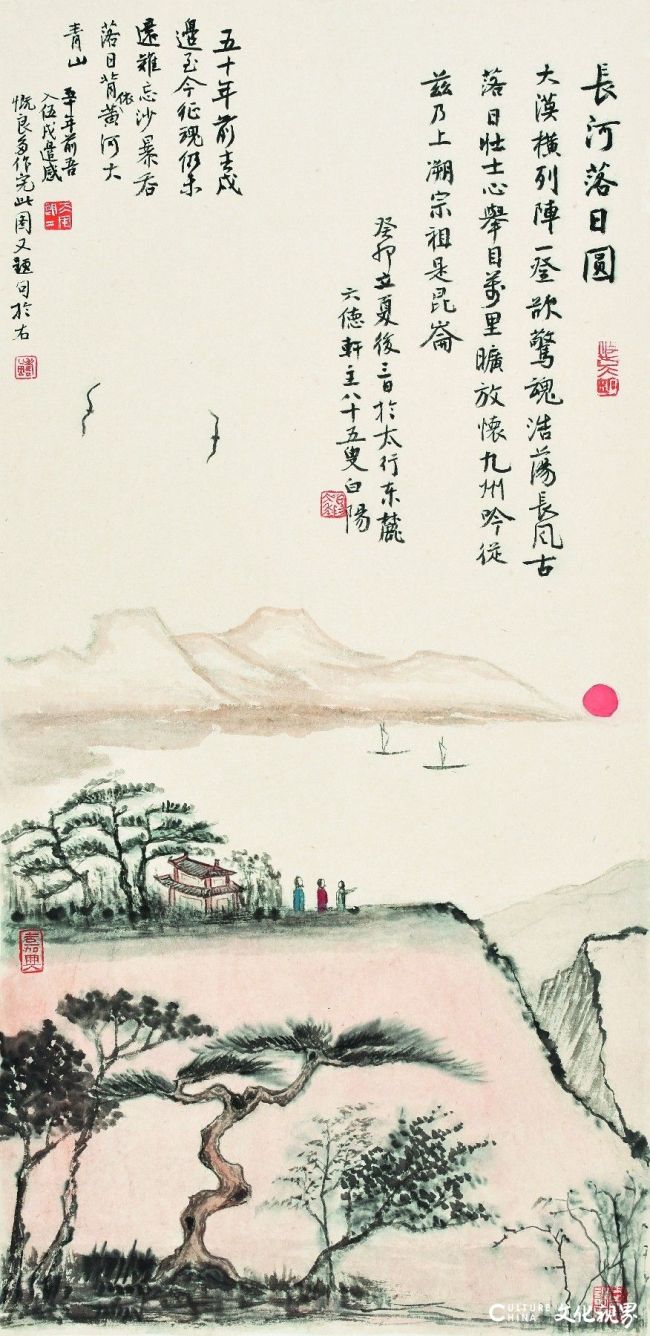 長河落日圓
大漠橫列陣一登欲驚魂浩蕩長风古
落日壮士心舉目萬里曠放懷九州吟從
兹乃上溯宗祖是昆崙
癸卯立夏後三日於太行东麓
六德軒主八十五叟白陽
五十年前去戍
邊至今征魂仍未
還難忘沙暴吞
落日背依黄河大
青山
五十年前吾
入伍戍邊感
慨良多作完此图又題句於右
袁嘉興
CULTURE CHINA 文化视界